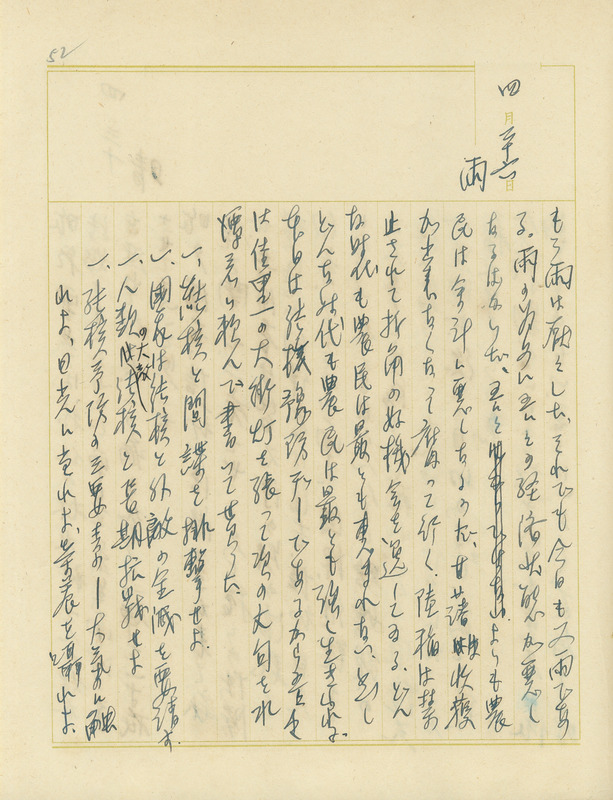 52
四月二十六日
雨
もう雨は厭々した。それでも今日も又雨であ
る。雨の為めに吾々の経済状態が悪く
なるばかりだ。吾々よりも農
民は余計に悪くなるのだ。甘藷は收穫
が出来なくなって腐って行く。陸稲は禁
止されて折角の好機会を逸してゐる。どん
な時代も農民は最とも恵まれない。然し
どんな時代も農民は最とも強く生きられる。
本日は結核豫防デーであるから吾々
は佳里一の大街灯を張って次の文句を
煙若に頼んで書って貰った。
一、結核と間諜を排撃せよ。
一、國家は結核と外敵の全滅を要請す。
一、人類の大敵結核と長期抗戰せよ
一、結核予防の三要素ー大氣に触
れよ、日光に当れよ、栄養を摂れよ。